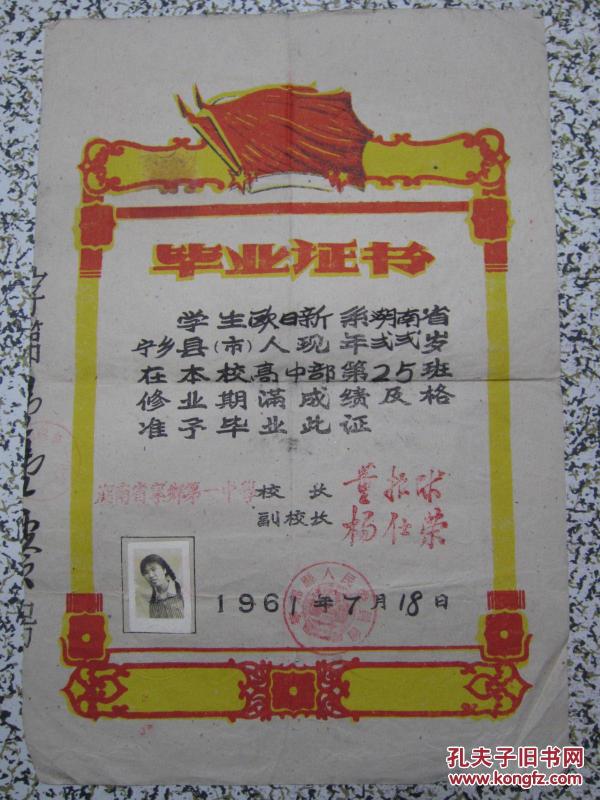 毕业证书
学生欧日新系湖南省
宁乡县(市)人现年弍弍岁
在本校高中部第25班
修业期满成绩及格
准予毕业此证
湖南省宁乡第一中学校长
副校长杨仕荣
1961年7月18日
孔夫子旧书网
www.kongfz.com